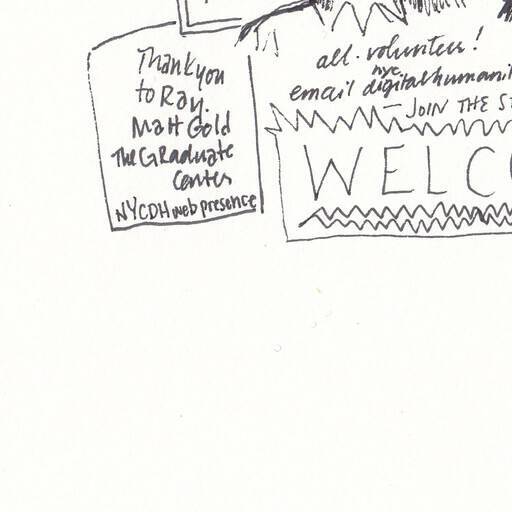 Thank you
to Ray.
Matt Gold
The Graduate
Center
NYCDH web presence
all-volunteer!
nyc
email digitalhumani
— JOIN THE S
WELCO